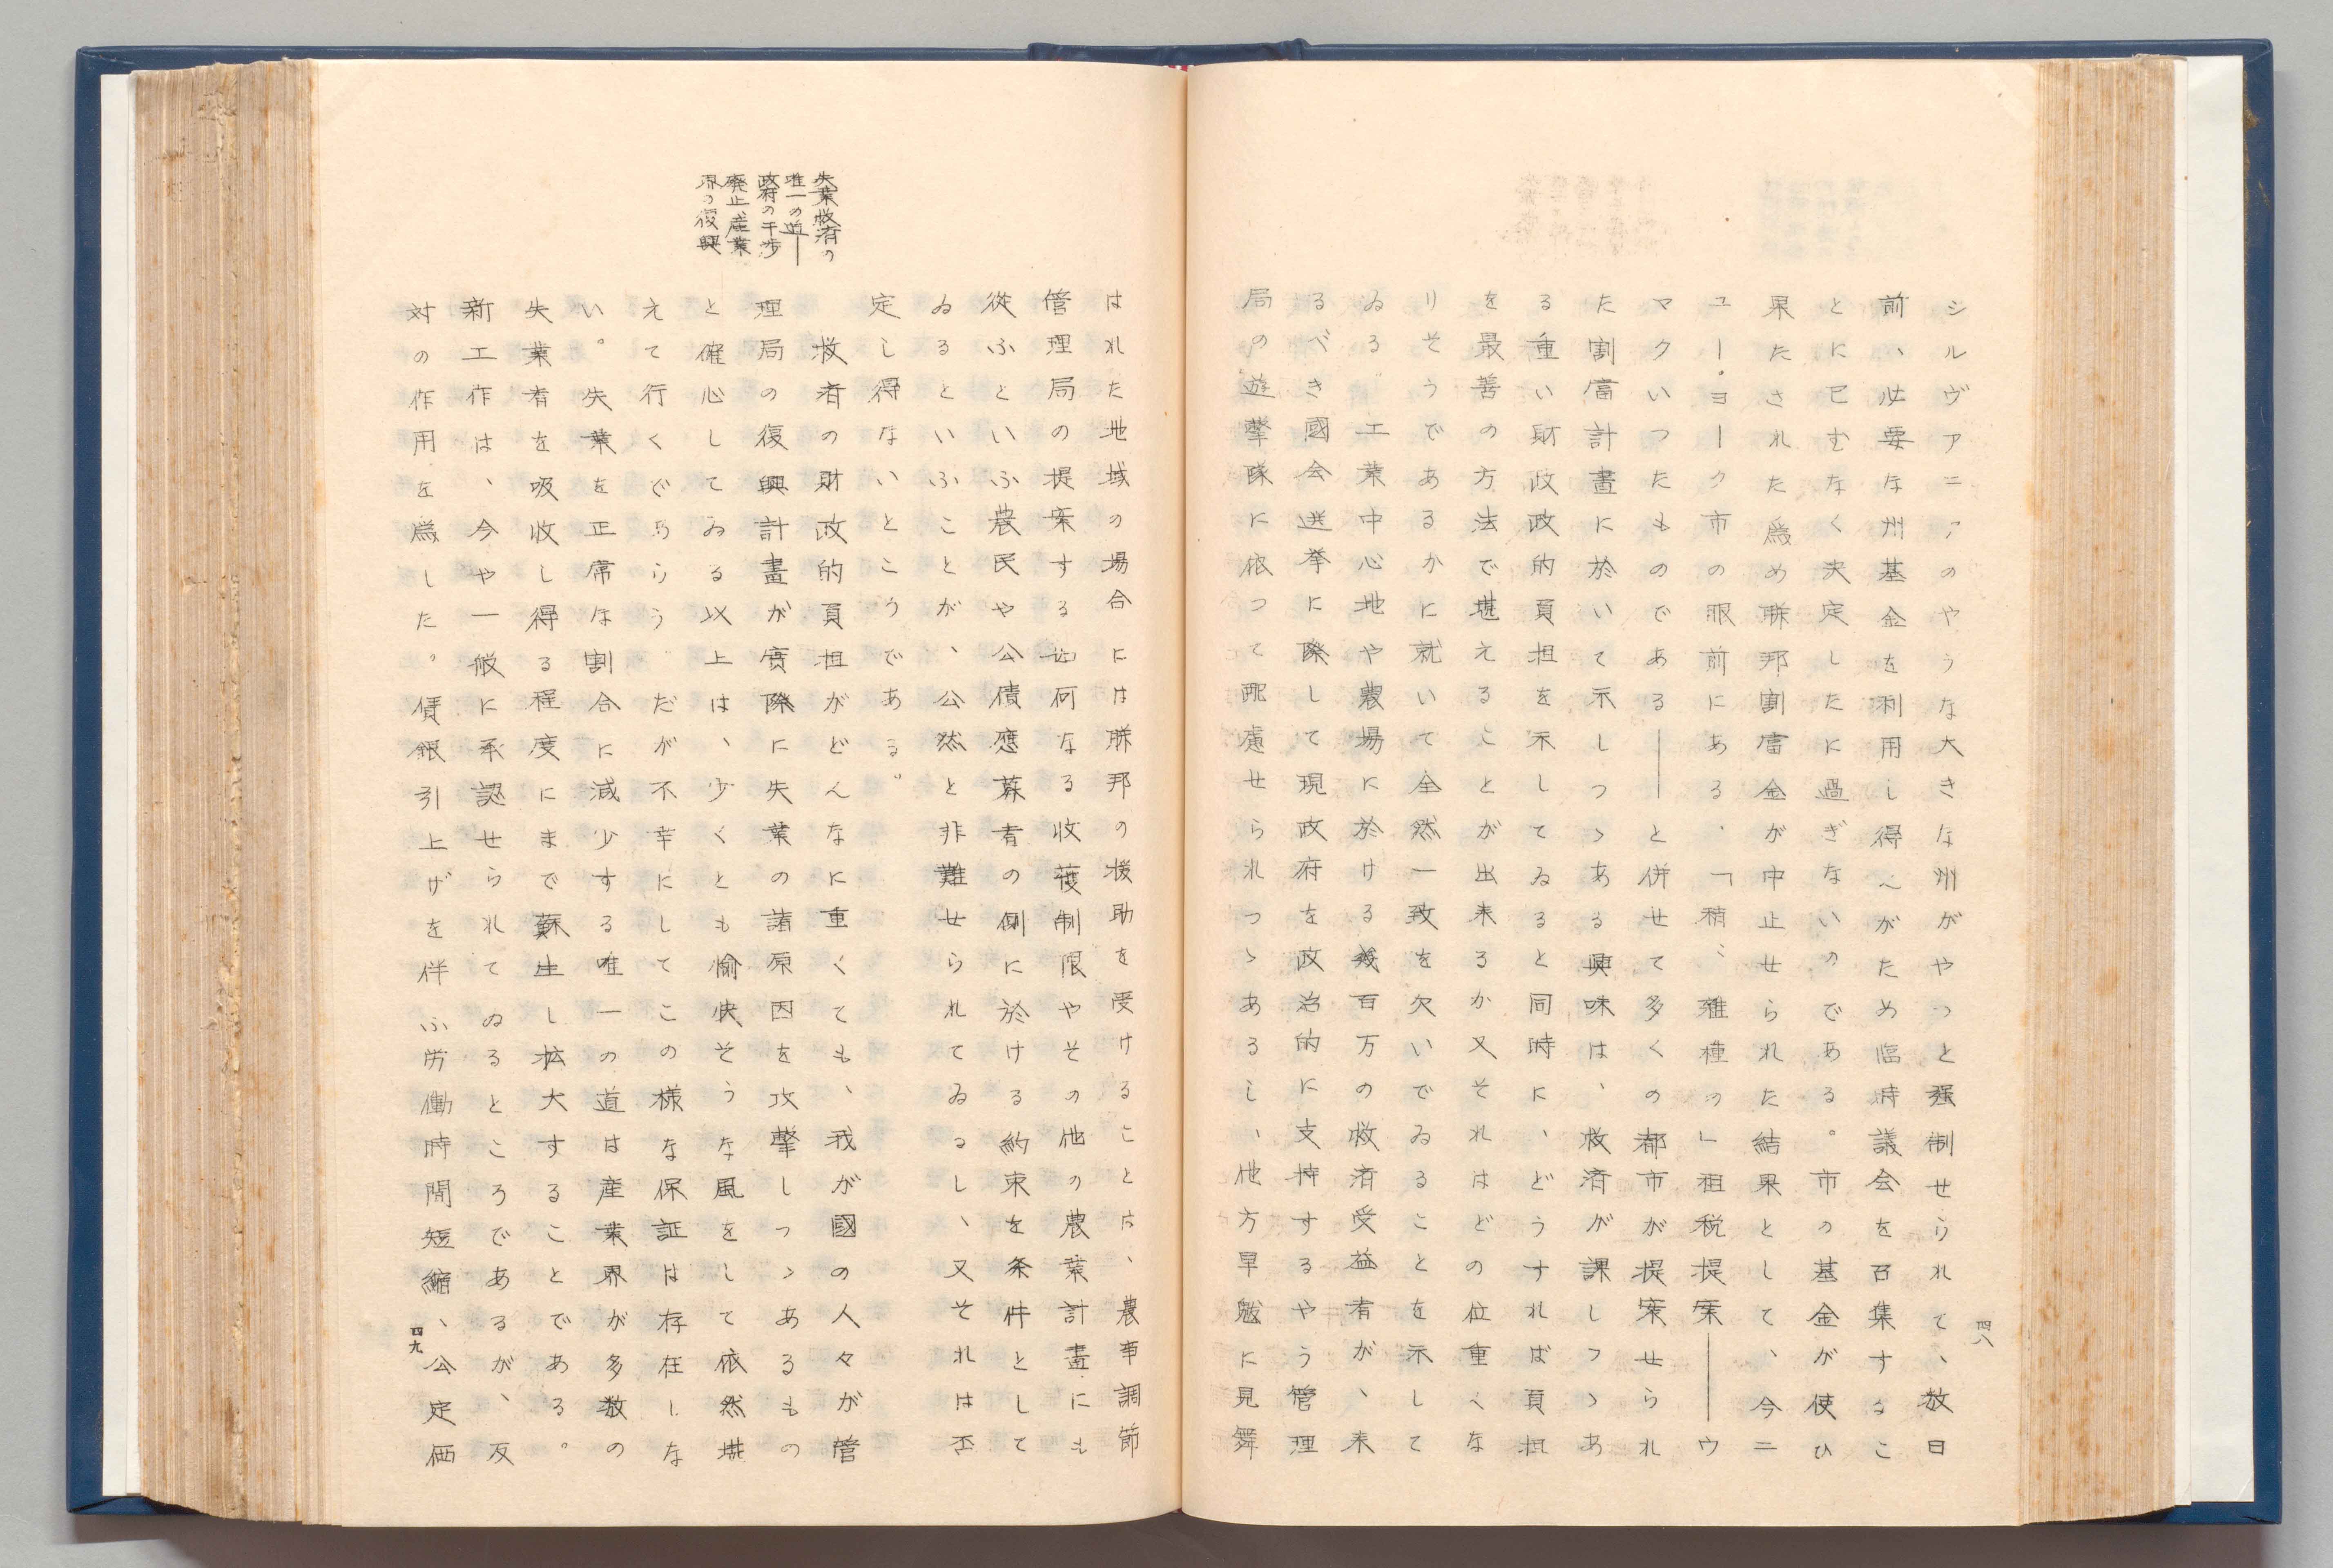 四八
シルヴアニアのやうな大きな州がやつと强制せられて、放日
前、必要な州基金を利用し得んがため臨時議会を召集するこ
とに已むなく決定したに過ぎないのである。市の基金が使ひ
果たされた爲め聯邦割當金が中止せられた結果として、今ニ
ユー・ヨーク市の眼前にある、「稍〻雜種の」租税提案――ウ
マクいつたものである――と併せて多くの都市が提案せられ
た割當計畫に於いて示しつゝある興味は、救済が課しつゝあ
る重い財政政的負担を示してゐると同時に、どうすれば負担
を最善の方法で堪えることが出来るか又それはどの位重くな
りそうであるかに就いて全然一致を欠いでゐることを示して
ゐる。工業中心地や農場に於ける幾百万の救済受益者が、来
るべき國会選挙に際して現政府を政治的に支持するやう管理
局の遊撃隊に依つて配慮せられつゝあるし、他方旱魃に見舞
はれた地域の場合には聯邦の援助を受けることは、農事調節
管理局の提案する如何なる收穫制限やその他の農業計畫にも
從ふといふ農民や公債應募者の側に於ける約束を条件として
ゐるといふことが、公然と非難せられてゐるし、又それは否
定し得ないところである。
失業救済の
唯一の道――
政府の干渉
廃止産業
界の復興
救済の財政的負担がどんなに重くても、我が國の人々が管
理局の復興計畫が實際に失業の諸原因を攻撃しつゝあるもの
と確心してゐる以上は、少くとも愉快そうな風をして依然堪
えて行くであらう。だが不幸にしてこの様な保証は存在しな
い。失業を正常な割合に減少する唯一の道は産業界が多数の
失業者を吸收し得る程度にまで蘇生し拡大することである。
新工作は、今や一般に承認せられてゐるところであるが、反
対の作用を爲した。賃銀引上げを伴ふ労働時間短縮、公定価
四九